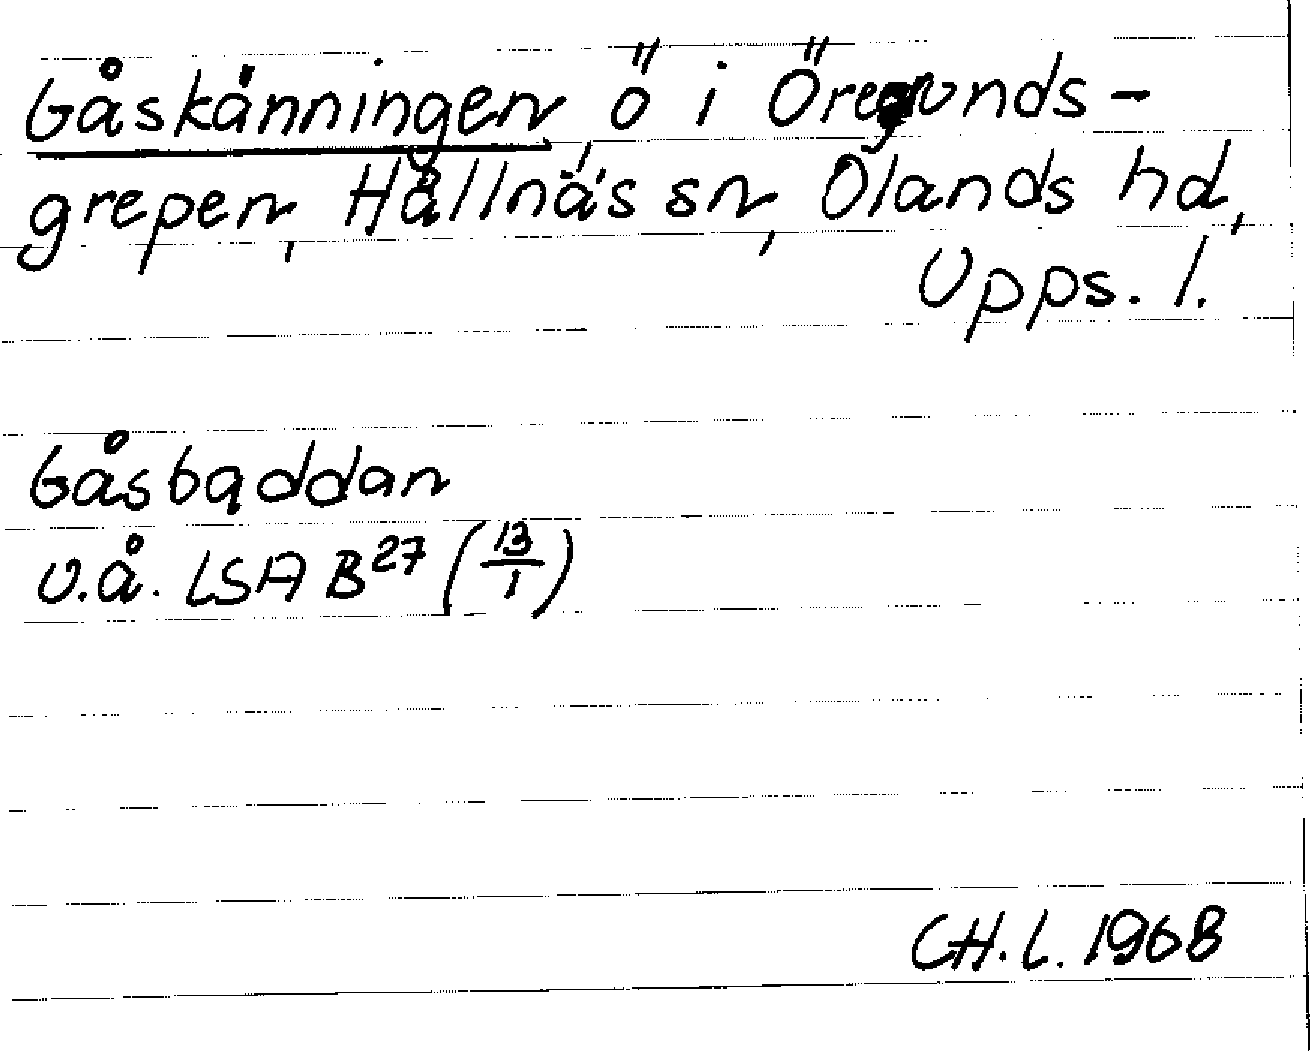 Gåskånningen, ö i Öregrunds-
grepen, Hållnäs sn, Olands hd,
Upps. l.
Gåsbaddan
u.å. LSA B27 (13/1)
CH. L. 1968